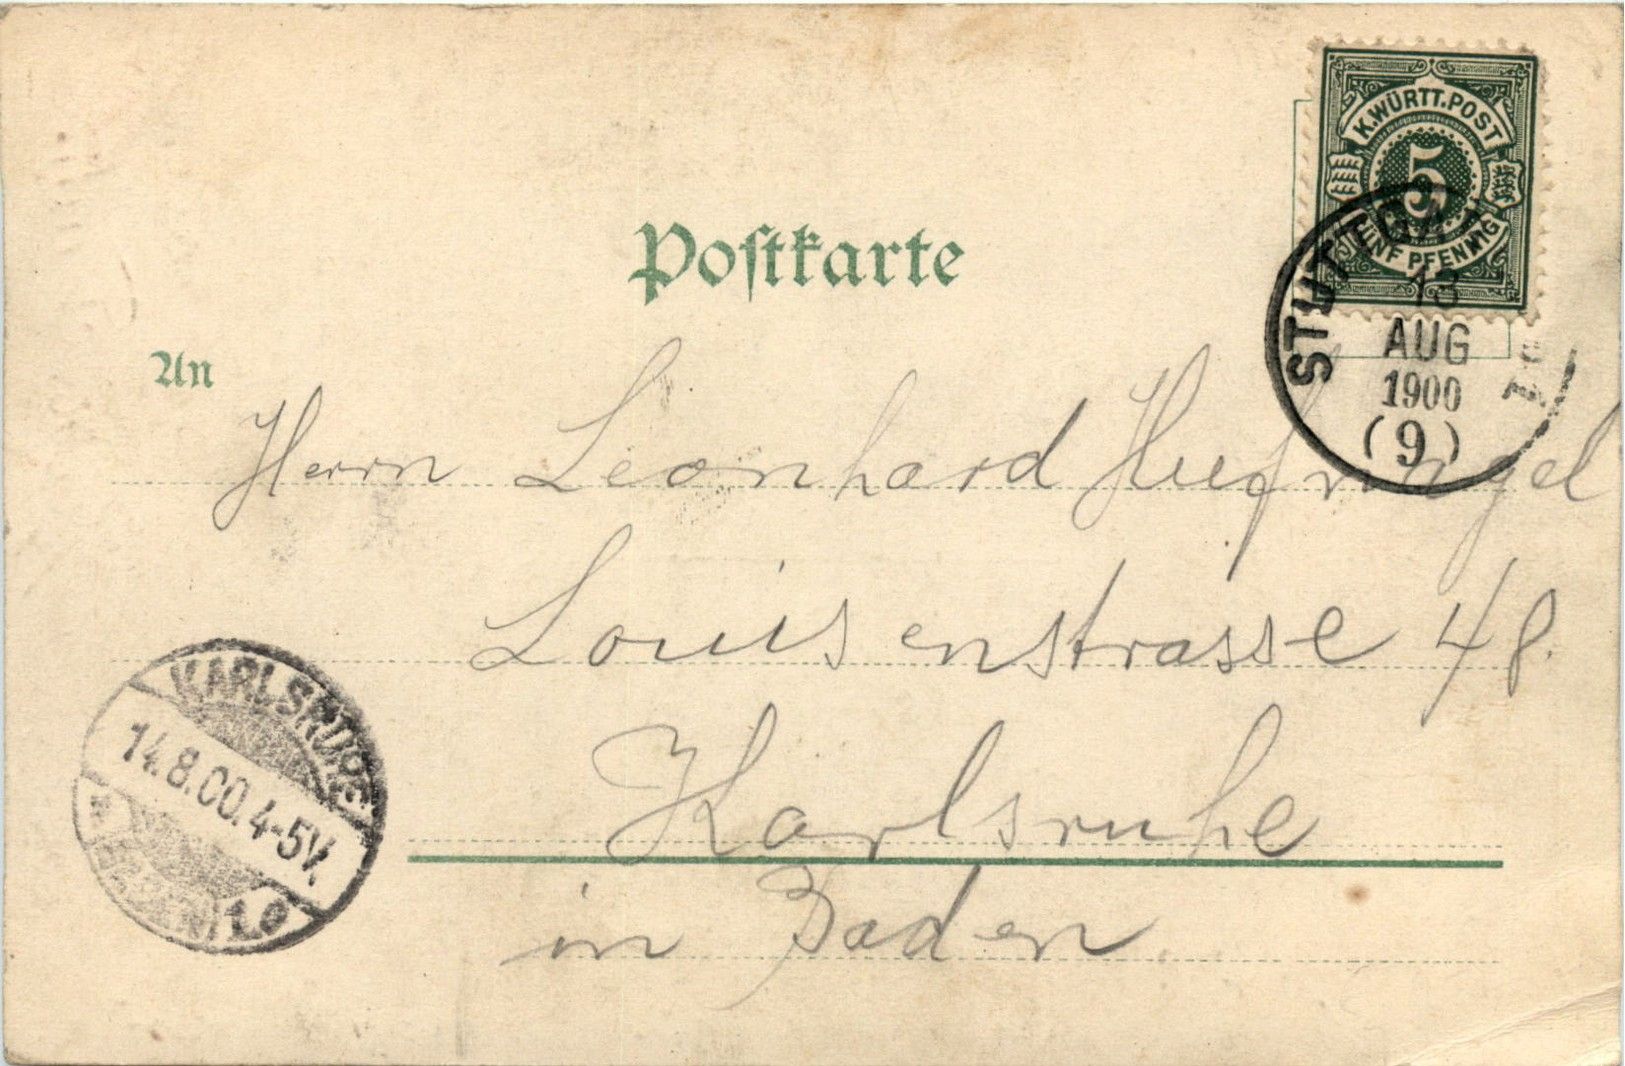 K. WÜRTT. POST
5
FÜNF PFENNIG
STUTTGART
13
AUG
1900
(9)
Postkarte
An
Herrn Leonhard Hufnagel
Louisenstrasse 48.
Karlsruhe
in Baden
KARLSRUHE
14.8.00.4-5V.
(BADEN) 1.e